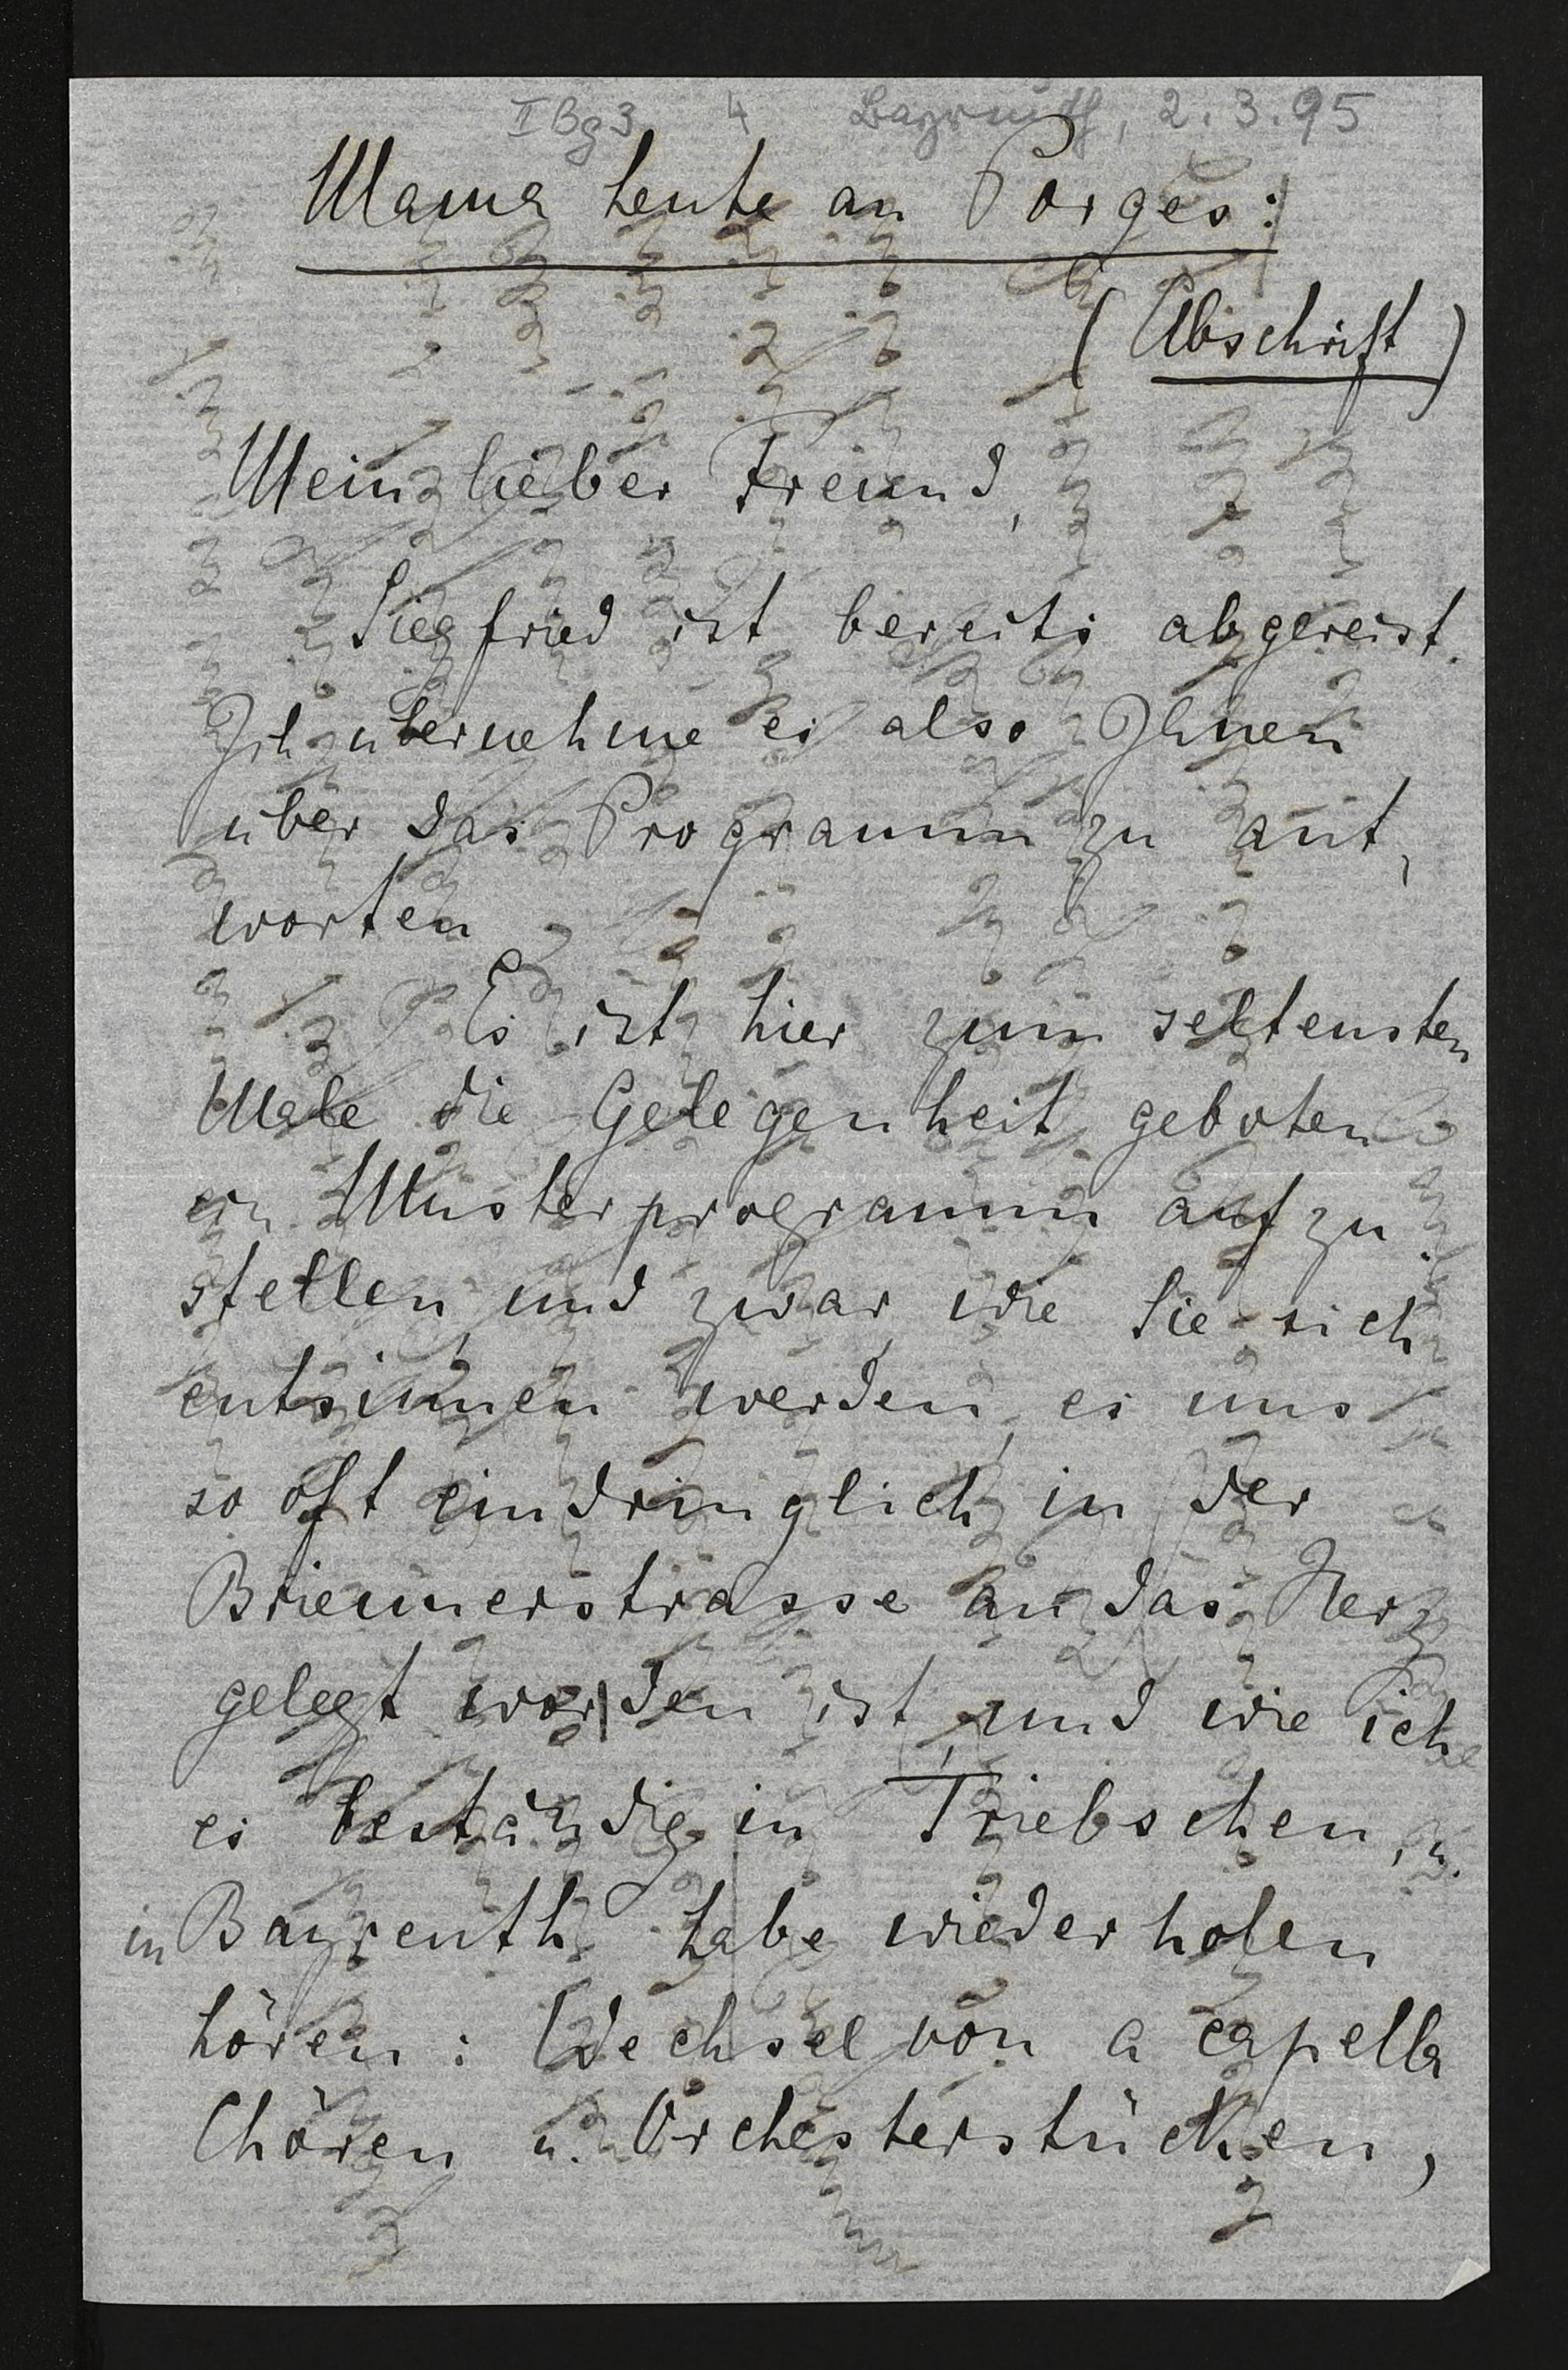 II Bg 3 4 Bayreuth, 2.3.95
Mama heute an Porges:
(Abschrift)
Mein lieber Freund,
Siegfried ist bereits abgereist.
Ich übernehme es also Ihnen
über das Programm zu ant,
worten
Es ist hier zum seltensten
Male die Gelegenheit geboten
ein Musterprogramm auf zu
stellen, und zwar, wie Sie sich
entsinnen werden, es uns
so oft eindringlich in der
Briennerstrasse an das Herz
gelegt wor|den ist, und wie ich
es beständig in Triebschen, u.
in Bayreuth habe wiederholen
hören: Wechsel von a capella
Chören u. Orchesterstücken,